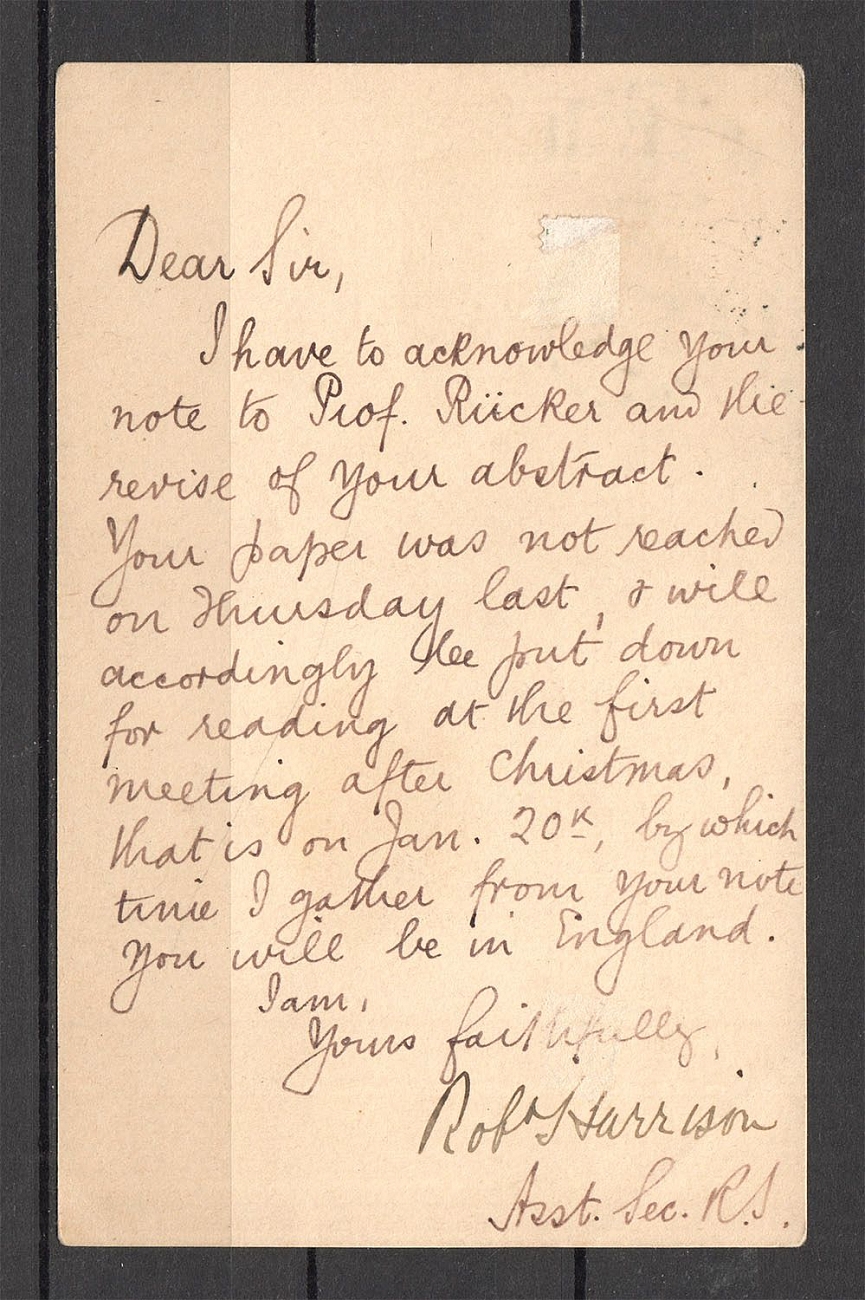 Dear Sir,
I have to acknowledge your
note to Prof. Rücker and the
revise of your abstract.
Your paper was not reached
on Thursday last, & will
accordingly be put down
for reading at the first
meeting after Christmas,
that is on Jan. 20th, by which
time I gather from your note
you will be in England.
I am,
Yours faithfully,
Robt Harrison
Asst. Sec. R.S.